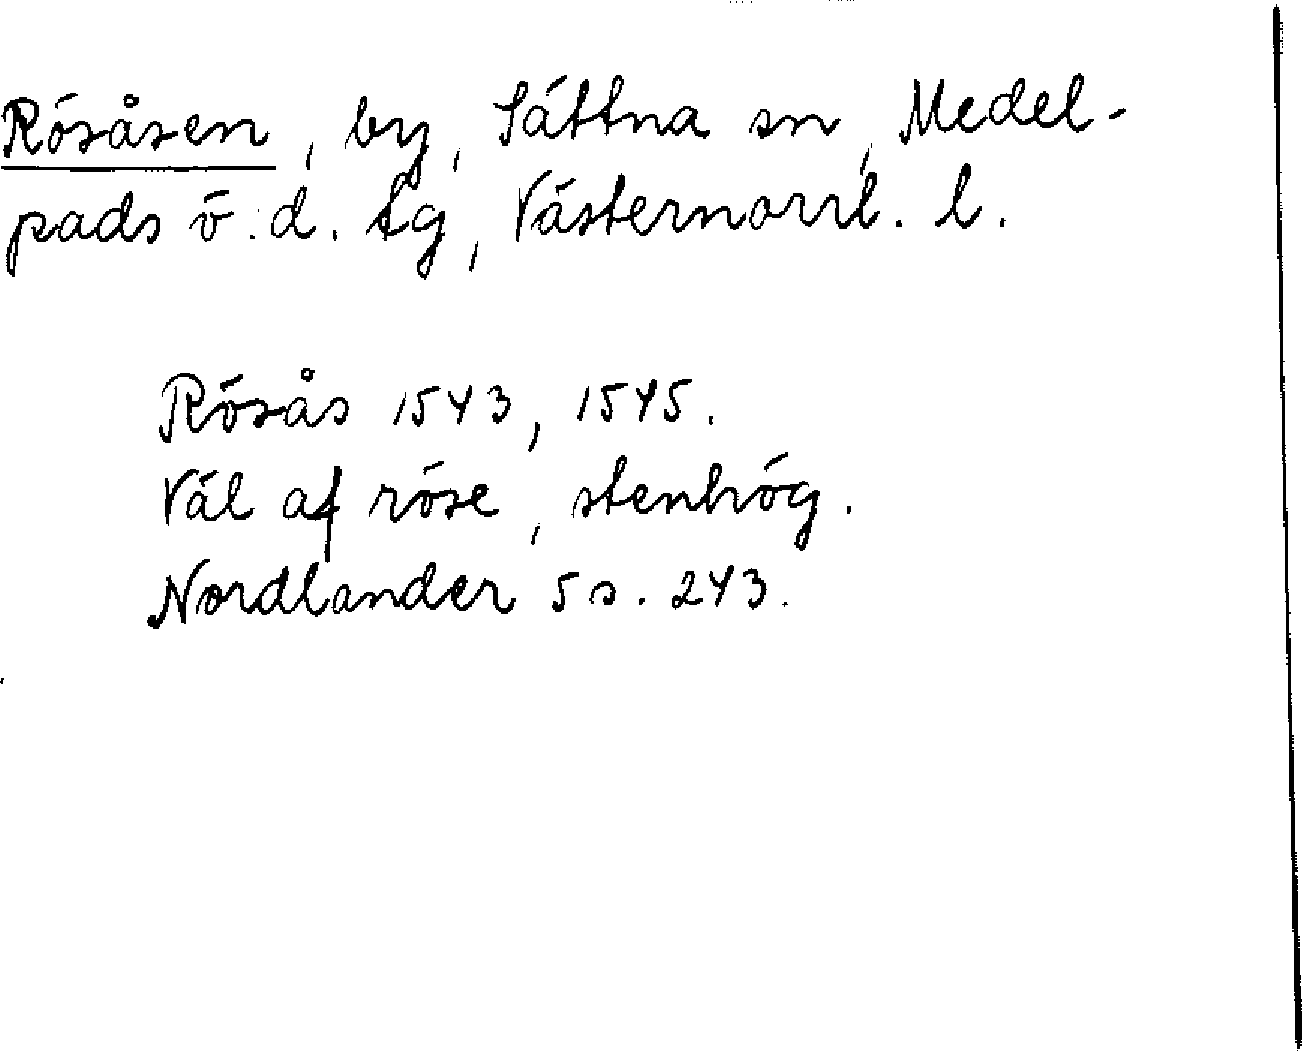 Rösåsen, by, Sättna sn, Medel-
pads ö. d. tg, Västernorrl. l.
Rösås 1543, 1545.
Väl af röse, stenhög.
Nordlander 5 s. 243.